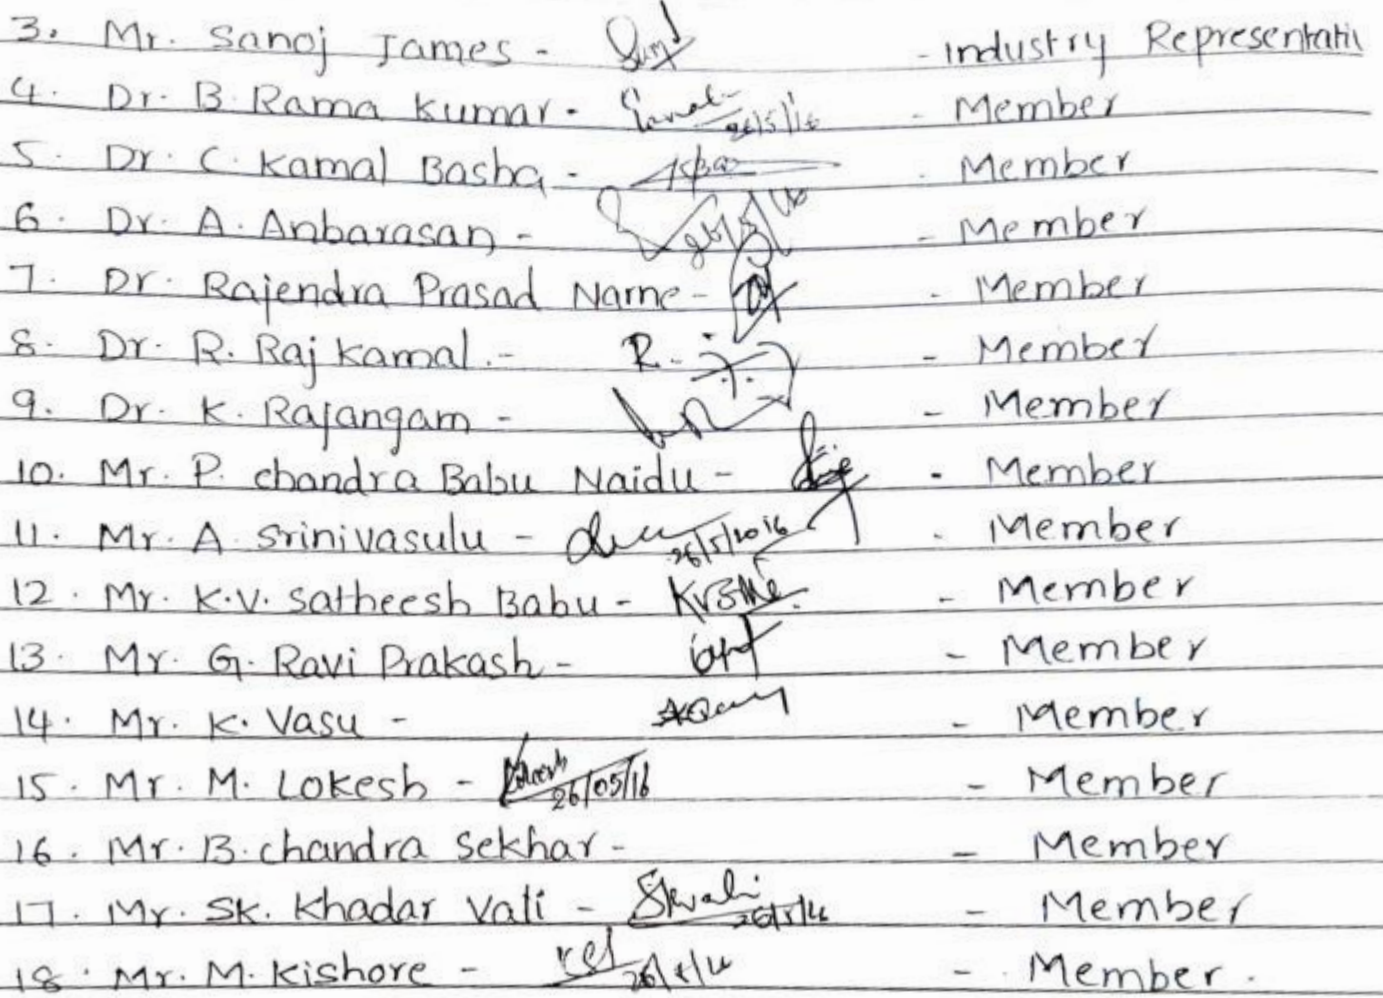 3. Mr. Sanoj James - - Industry Representati
4. Dr. B. Rama Kumar - 26/5/16 - Member
5. Dr. C. Kamal Basha - - Member
6. Dr. A. Anbarasan - 26/5/16 - Member
7. Dr. Rajendra Prasad Narne - - Member
8. Dr. R. Raj Kamal. - R. - Member
9. Dr. K. Rajangam - - Member
10. Mr. P. Chandra Babu Naidu - - Member
11. Mr. A Srinivasulu - 26/5/2016 - Member
12. Mr. K.V. Satheesh Babu - - Member
13. Mr. G. Ravi Prakash - - Member
14. Mr. K. Vasu - - Member
15. Mr. M. Lokesh - 26/05/16 - Member
16. Mr. B. Chandra Sekhar - - Member
17. Mr. SK. Khadar Vali - 26/5/16 - Member
18. Mr. M. Kishore - 26/5/16 - Member.